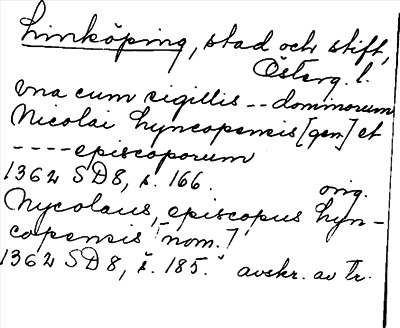 Linköping, stad och stift,
Österg. l.
vna cum sigillis -- dominorum
Nicolai Lyncopensis [gen.] et
---- episcoporum
1362 SD8, s. 166. orig.
Nycolaus, episcopus Lyn-
copensis [nom.]
1362 SD8, s. 185. avskr. av Tr.